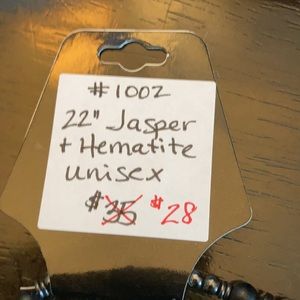 #1002
22" Jasper
+ Hematite
unisex
$35 $28